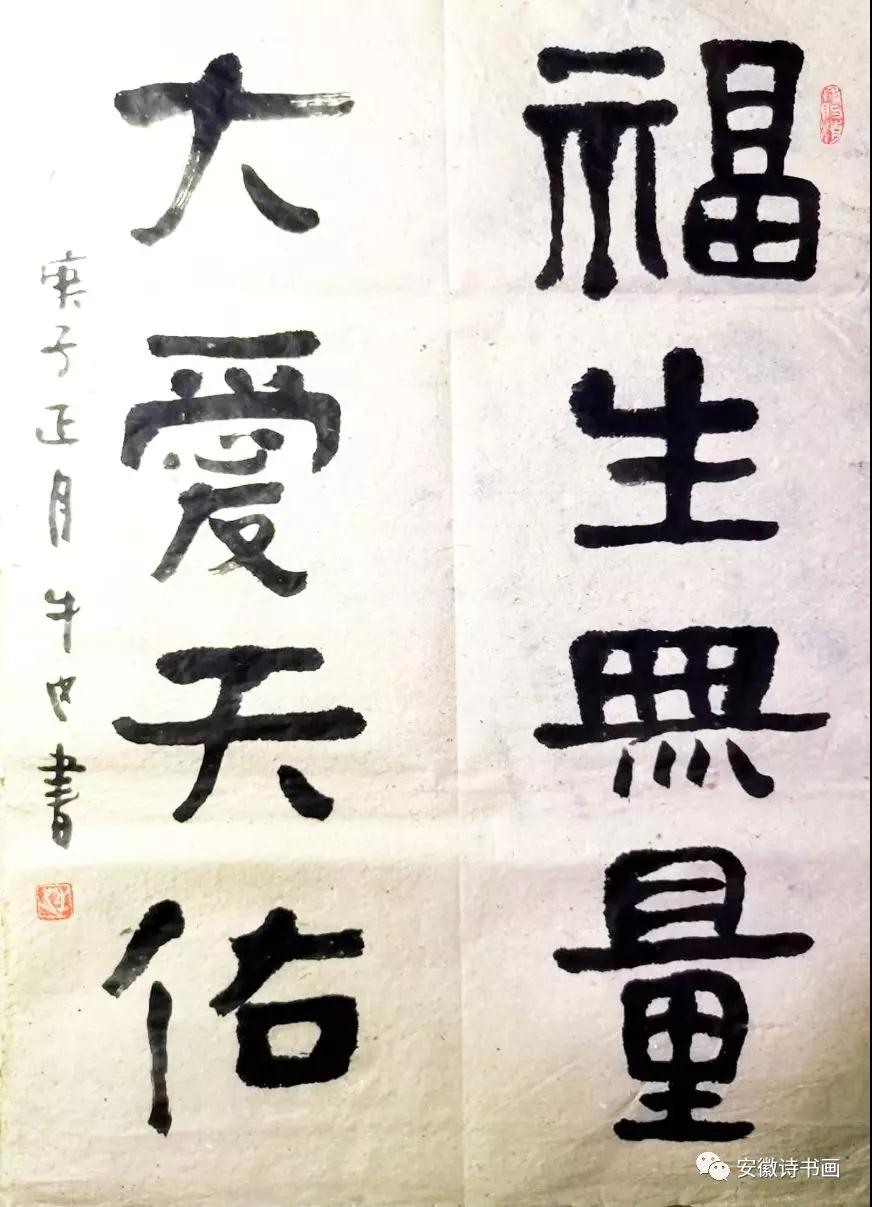 福生無量
大愛天佑
庚子正月牛也書
安徽诗书画